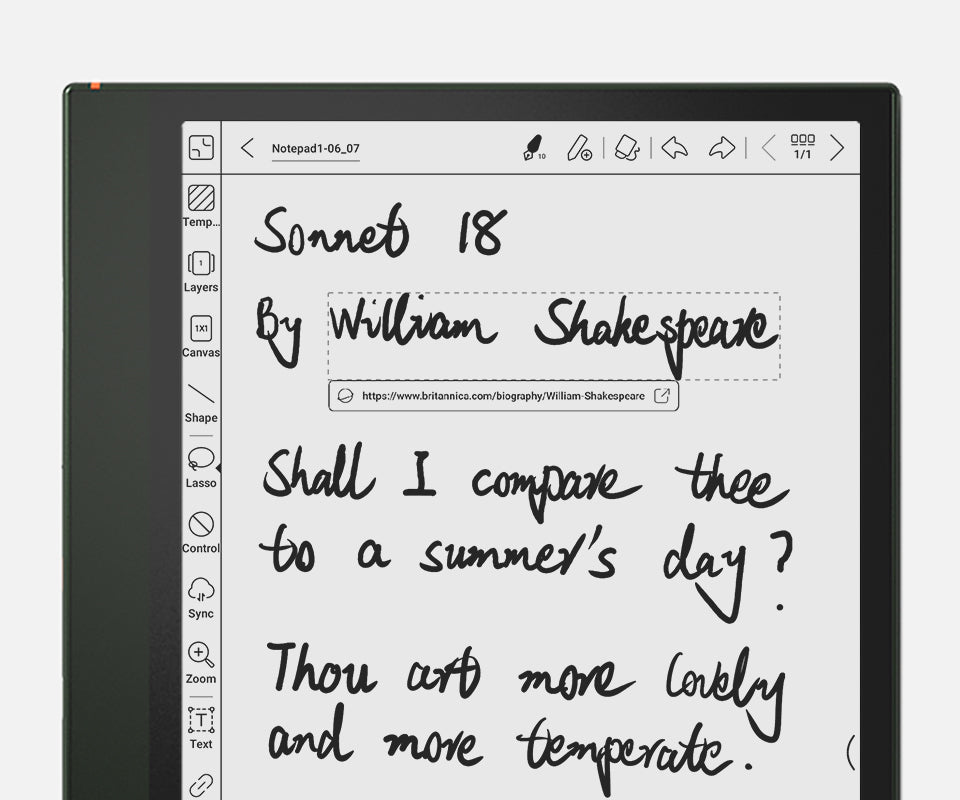 Notepad1-06_07
10
1/1
Temp...
1
Layers
1X1
Canvas
Shape
Lasso
Control
Sync
Zoom
T
Text
Sonnet 18
By William Shakespeare
https://www.britannica.com/biography/William-Shakespeare
Shall I compare thee
to a summer's day?
Thou art more lovely
and more temperate.